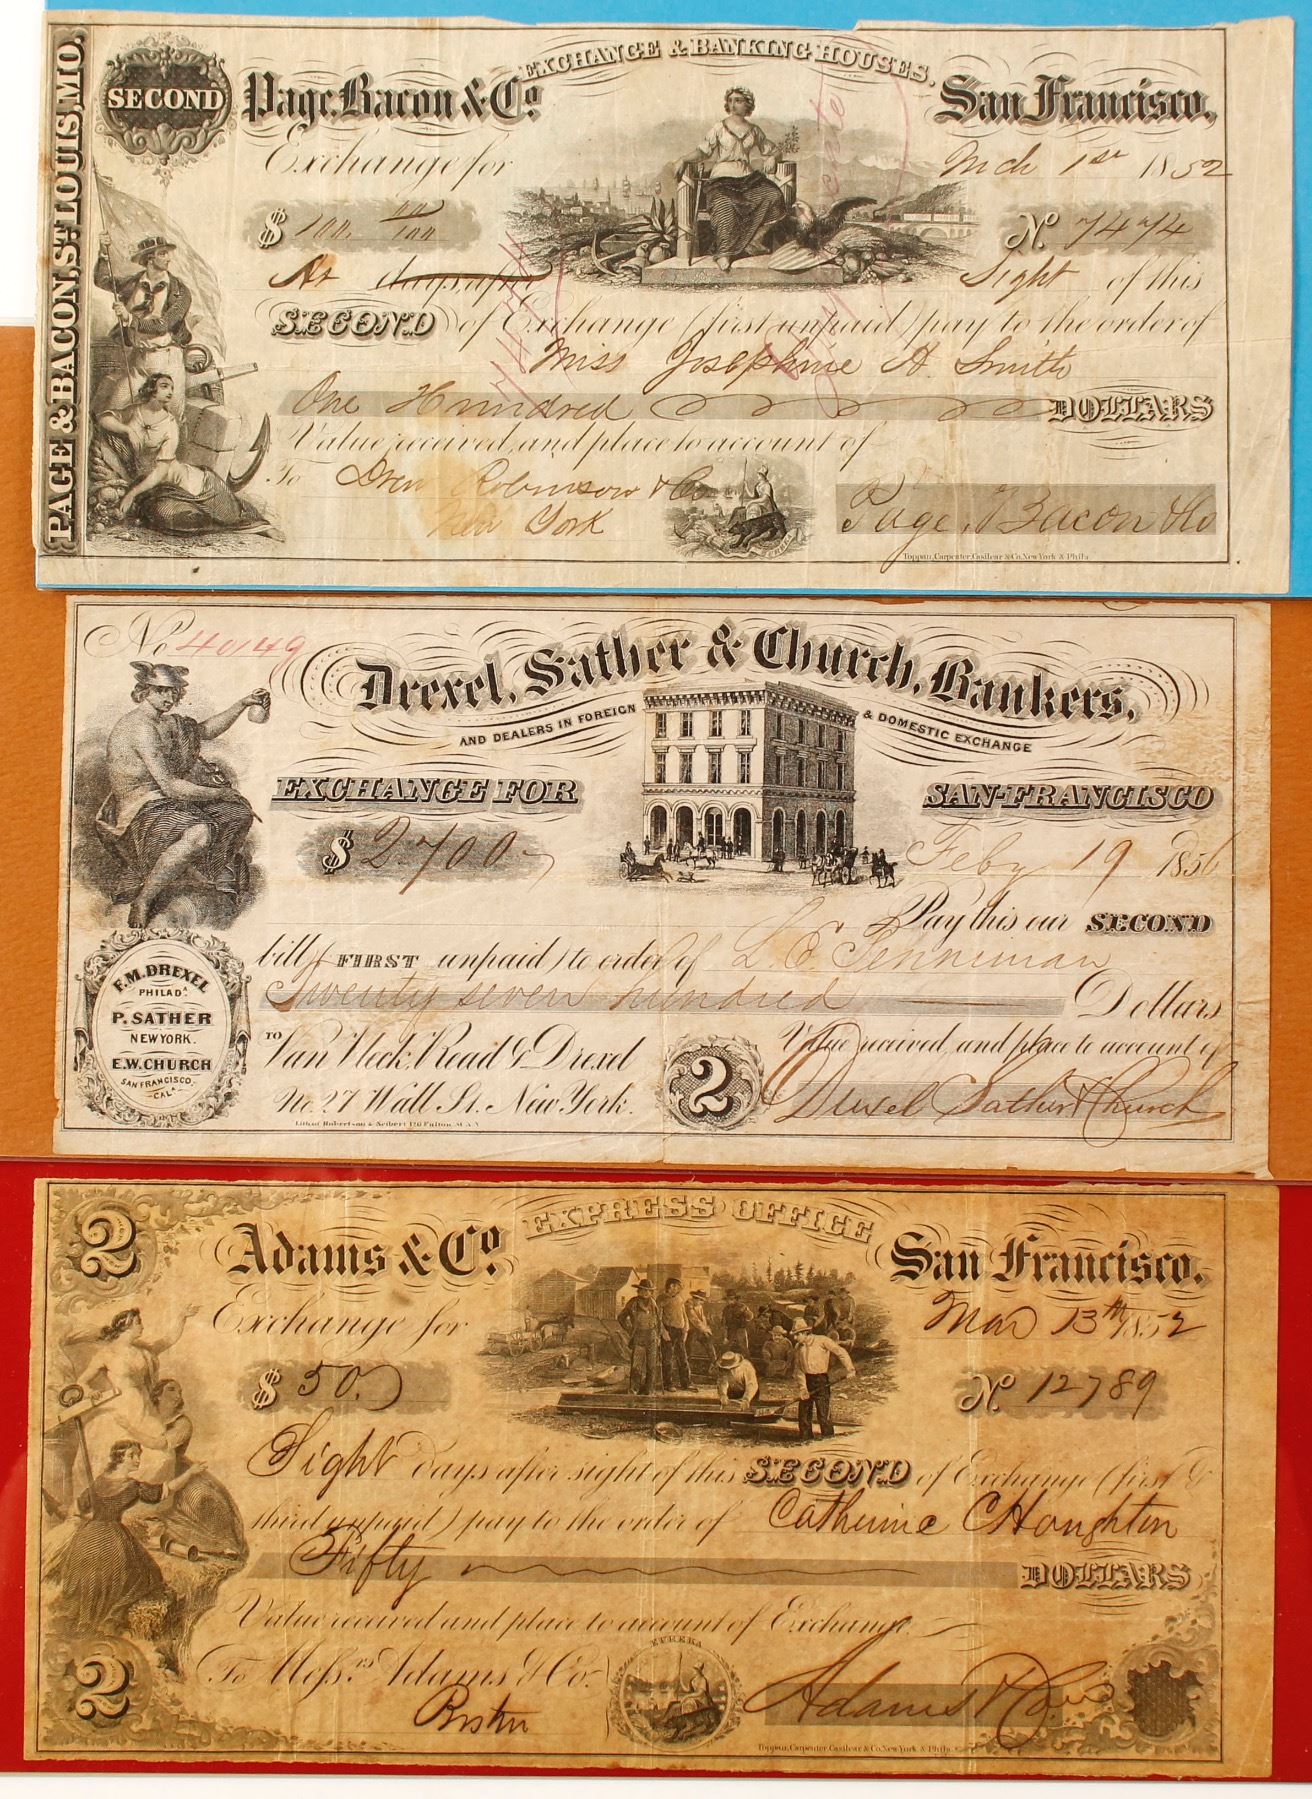 PAGE & BACON, ST. LOUIS, MO.
SECOND
EXCHANGE & BANKING HOUSES.
Page, Bacon & Co. San Francisco,
Exchange for Mch 1st 1852
$ 100. 00/100 No. 7474
At days after Sight of this
SECOND of Exchange (first unpaid) pay to the order of
Miss Josephine A Smith
One Hundred DOLLARS
Value received, and place to account of
To Drew Robinson & Co
New York
Page, Bacon & Co
Toppan, Carpenter, Casilear & Co. New York & Phila.
No 40149
Drexel, Sather & Church, Bankers,
AND DEALERS IN FOREIGN & DOMESTIC EXCHANGE
EXCHANGE FOR SAN-FRANCISCO
$ 2700 Feby 19 1856
Pay this our SECOND
bill (FIRST unpaid) to order of L. E.
Twenty seven hundred Dollars
TO Value received, and place to account of
Van Vleck, Read & Drexel
No. 27 Wall St. New York.
2
Drexel Sather & Church
F.M. DREXEL
PHILADA.
P. SATHER
NEW YORK.
E.W. CHURCH
SAN FRANCISCO.
CALA.
Lith. of Robertson & Seibert 120 Fulton St. N.Y.
2
EXPRESS OFFICE
Adams & Co. San Francisco.
Exchange for Mar 13th 1852
$ 50. No. 12789
Sight days after sight of this SECOND of Exchange (first &
third unpaid) pay to the order of Catherine C Houghton
Fifty DOLLARS
Value received and place to account of Exchange.
To Messrs Adams & Co.
Boston
EUREKA
Adams & Co.
2
Toppan, Carpenter, Casilear & Co. New York & Phila.